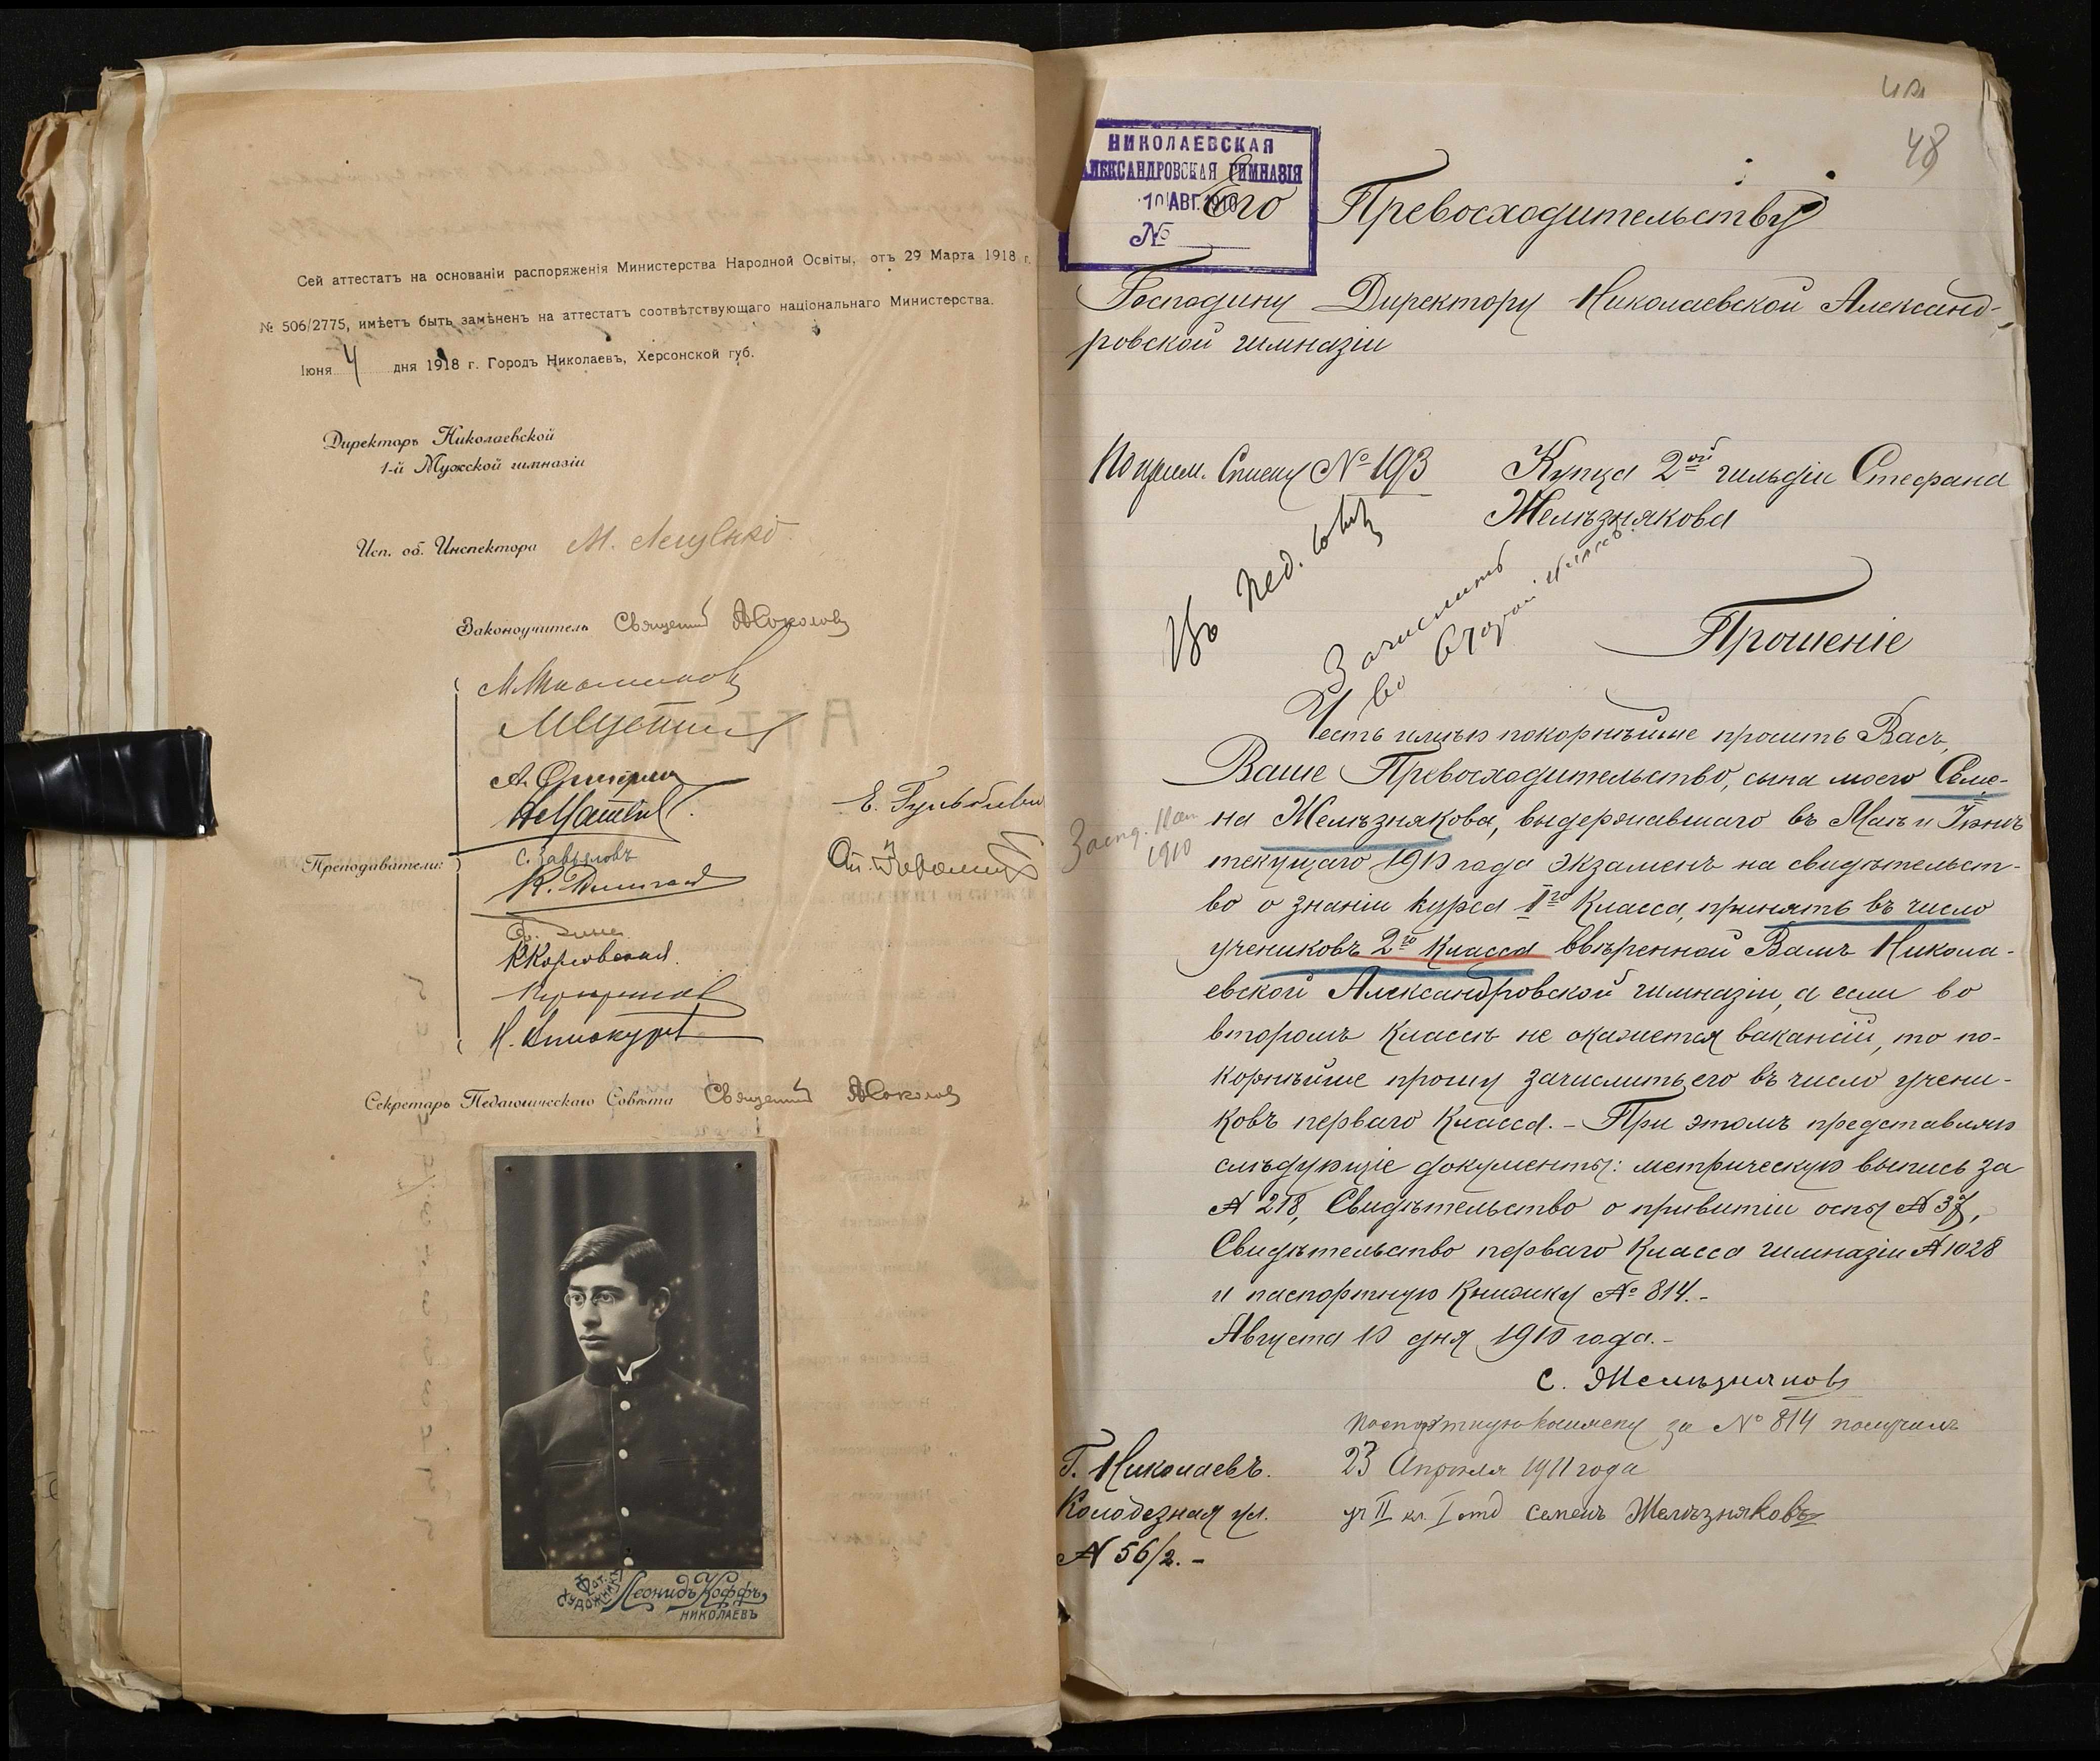 Сей аттестатъ на основаніи распоряженія Министерства Народной Освіты, отъ 29 Марта 1918 г.
№ 506/2775, имѣетъ быть замѣненъ на аттестатъ соотвѣтствующаго національнаго Министерства.
Іюня 4 дня 1918 г. Городъ Николаевъ, Херсонской губ.
Директоръ Николаевской
1-й Мужской гимназіи
Исп. об. Инспектора М.
Законоучитель Священникъ
Преподаватели:
С. Завьяловъ
Секретарь Педагогическаго Совѣта Священникъ
Фот.
Художника
Леонидъ Коффъ,
НИКОЛАЕВЪ
48
НИКОЛАЕВСКАЯ
АЛЕКСАНДРОВСКАЯ ГИМНАЗІЯ
10 АВГ. 1910
№
Его Превосходительству
Господину Директору Николаевской Александ-
ровской гимназіи
По прим. Списку № 193
Купца 2ой гильдіи Стефана
Желѣзнякова
Въ Пед. Совѣтъ
Зачислить
во второй классъ.
Прошеніе
Честь имѣю покорнѣйше просить Васъ,
Ваше Превосходительство, сына моего Семе-
на Желѣзнякова, выдержавшаго въ Маѣ и Іюнѣ
1910
текущаго 1910 года экзаменъ на свидѣтельст-
во о знаніи курса Iго Класса, принять въ число
учениковъ 2го Класса ввѣренной Вамъ Никола-
евской Александровской гимназіи, а если во
второмъ Классѣ не окажется вакансіи, то по-
корнѣйше прошу зачислить его въ число учени-
ковъ перваго Класса. - При этомъ представляю
слѣдующіе документы: метрическую выпись за
№ 218, Свидѣтельство о привитіи оспы № 37,
Свидѣтельство перваго Класса гимназіи № 1028
и паспортную Книжку № 814. -
Августа 10 дня 1910 года. -
С. Желѣзняковъ
Паспортную книжку за № 814 получилъ
23 Апрѣля 1911 года
уч II кл. I отд Семенъ Желѣзняковъ
Г. Николаевъ.
Колодезная ул.
№ 56/2. -